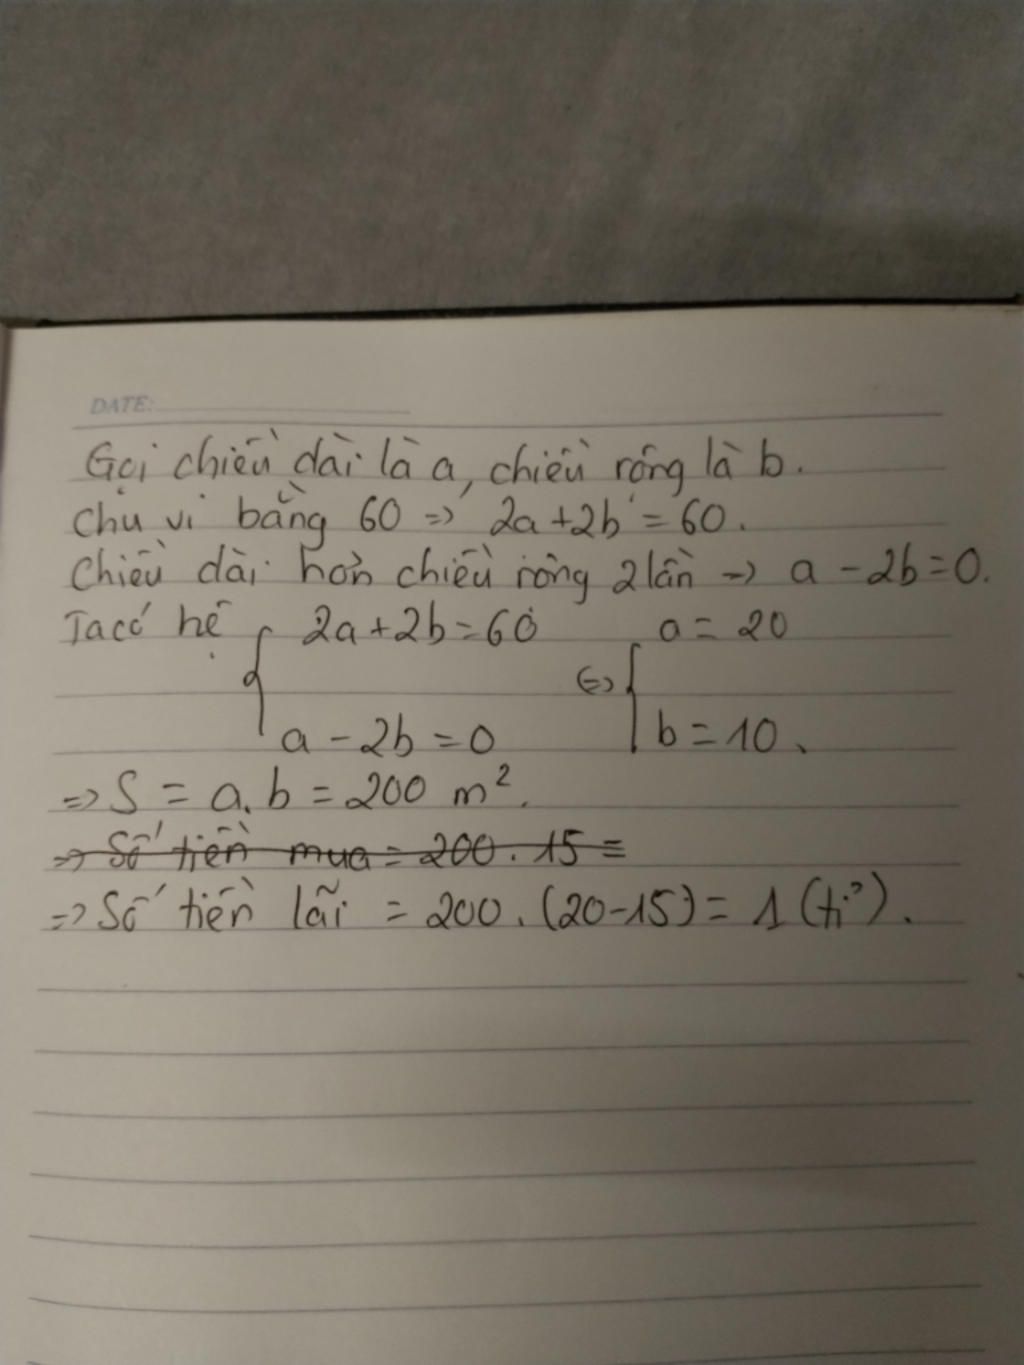 DATE:
Gọi chiều dài là a, chiều rộng là b.
Chu vi bằng 60 => 2a+2b = 60.
Chiều dài hơn chiều rộng 2 lần -> a - 2b = 0.
Ta có hệ { 2a+2b=60 <=> { a = 20
a - 2b = 0 b = 10.
=> S = a.b = 200 m².
=> Số tiền mua = 200 . 15 =
=> Số tiền lãi = 200 . (20-15) = 1 (tỉ).